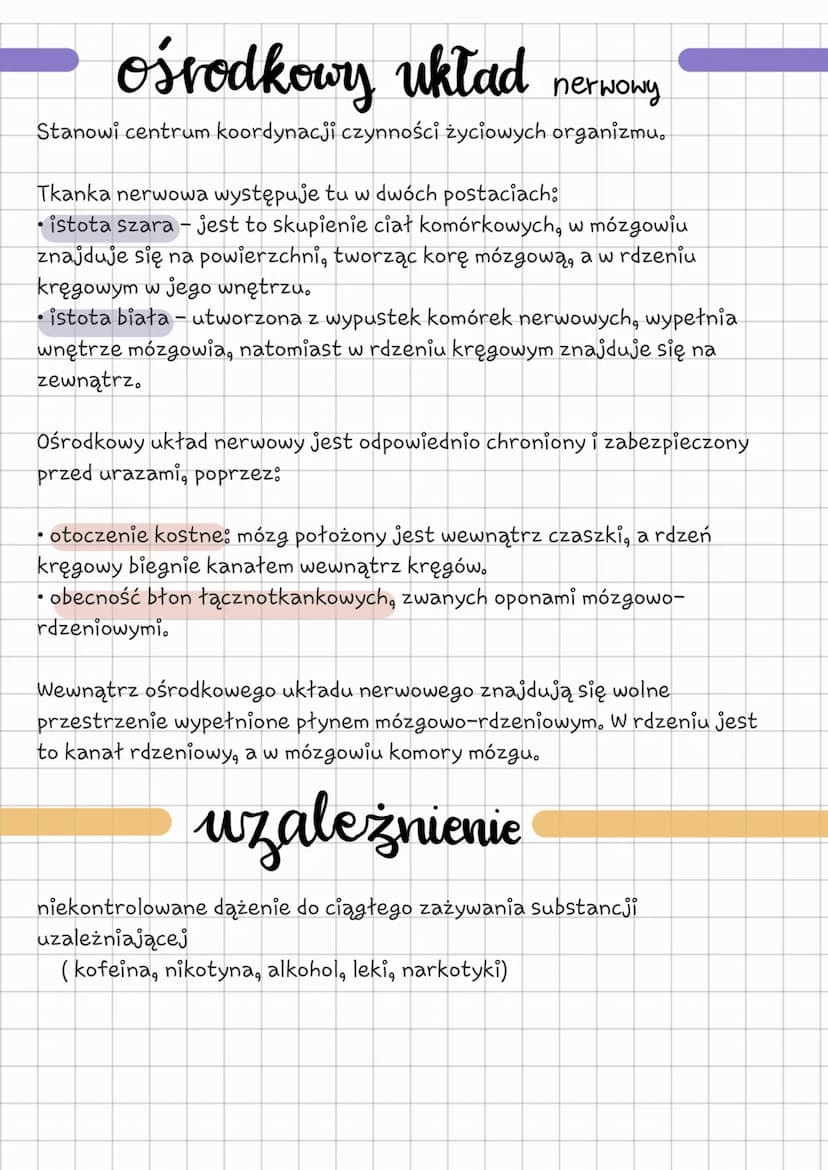 ośrodkowy układ nerwowy
Stanowi centrum koordynacji czynności życiowych organizmu.
Tkanka nerwowa występuje tu w dwóch postaciach:
• istota szara – jest to skupienie ciał komórkowych, w mózgowiu
znajduje się na powierzchni, tworząc korę mózgową, a w rdzeniu
kręgowym w jego wnętrzu.
• istota biała – utworzona z wypustek komórek nerwowych, wypełnia
wnętrze mózgowia, natomiast w rdzeniu kręgowym znajduje się na
zewnątrz.
Ośrodkowy układ nerwowy jest odpowiednio chroniony i zabezpieczony
przed urazami, poprzez:
• otoczenie kostne: mózg położony jest wewnątrz czaszki, a rdzeń
kręgowy biegnie kanałem wewnątrz kręgów.
• obecność błon łącznotkankowych, zwanych oponami mózgowo-
rdzeniowymi.
Wewnątrz ośrodkowego układu nerwowego znajdują się wolne
przestrzenie wypełnione płynem mózgowo-rdzeniowym. W rdzeniu jest
to kanał rdzeniowy, a w mózgowiu komory mózgu.
uzależnienie
niekontrolowane dążenie do ciągłego zażywania substancji
uzależniającej
( kofeina, nikotyna, alkohol, leki, narkotyki)